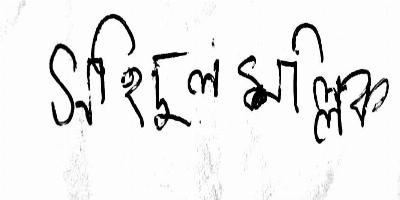 সহিদুল মল্লিক